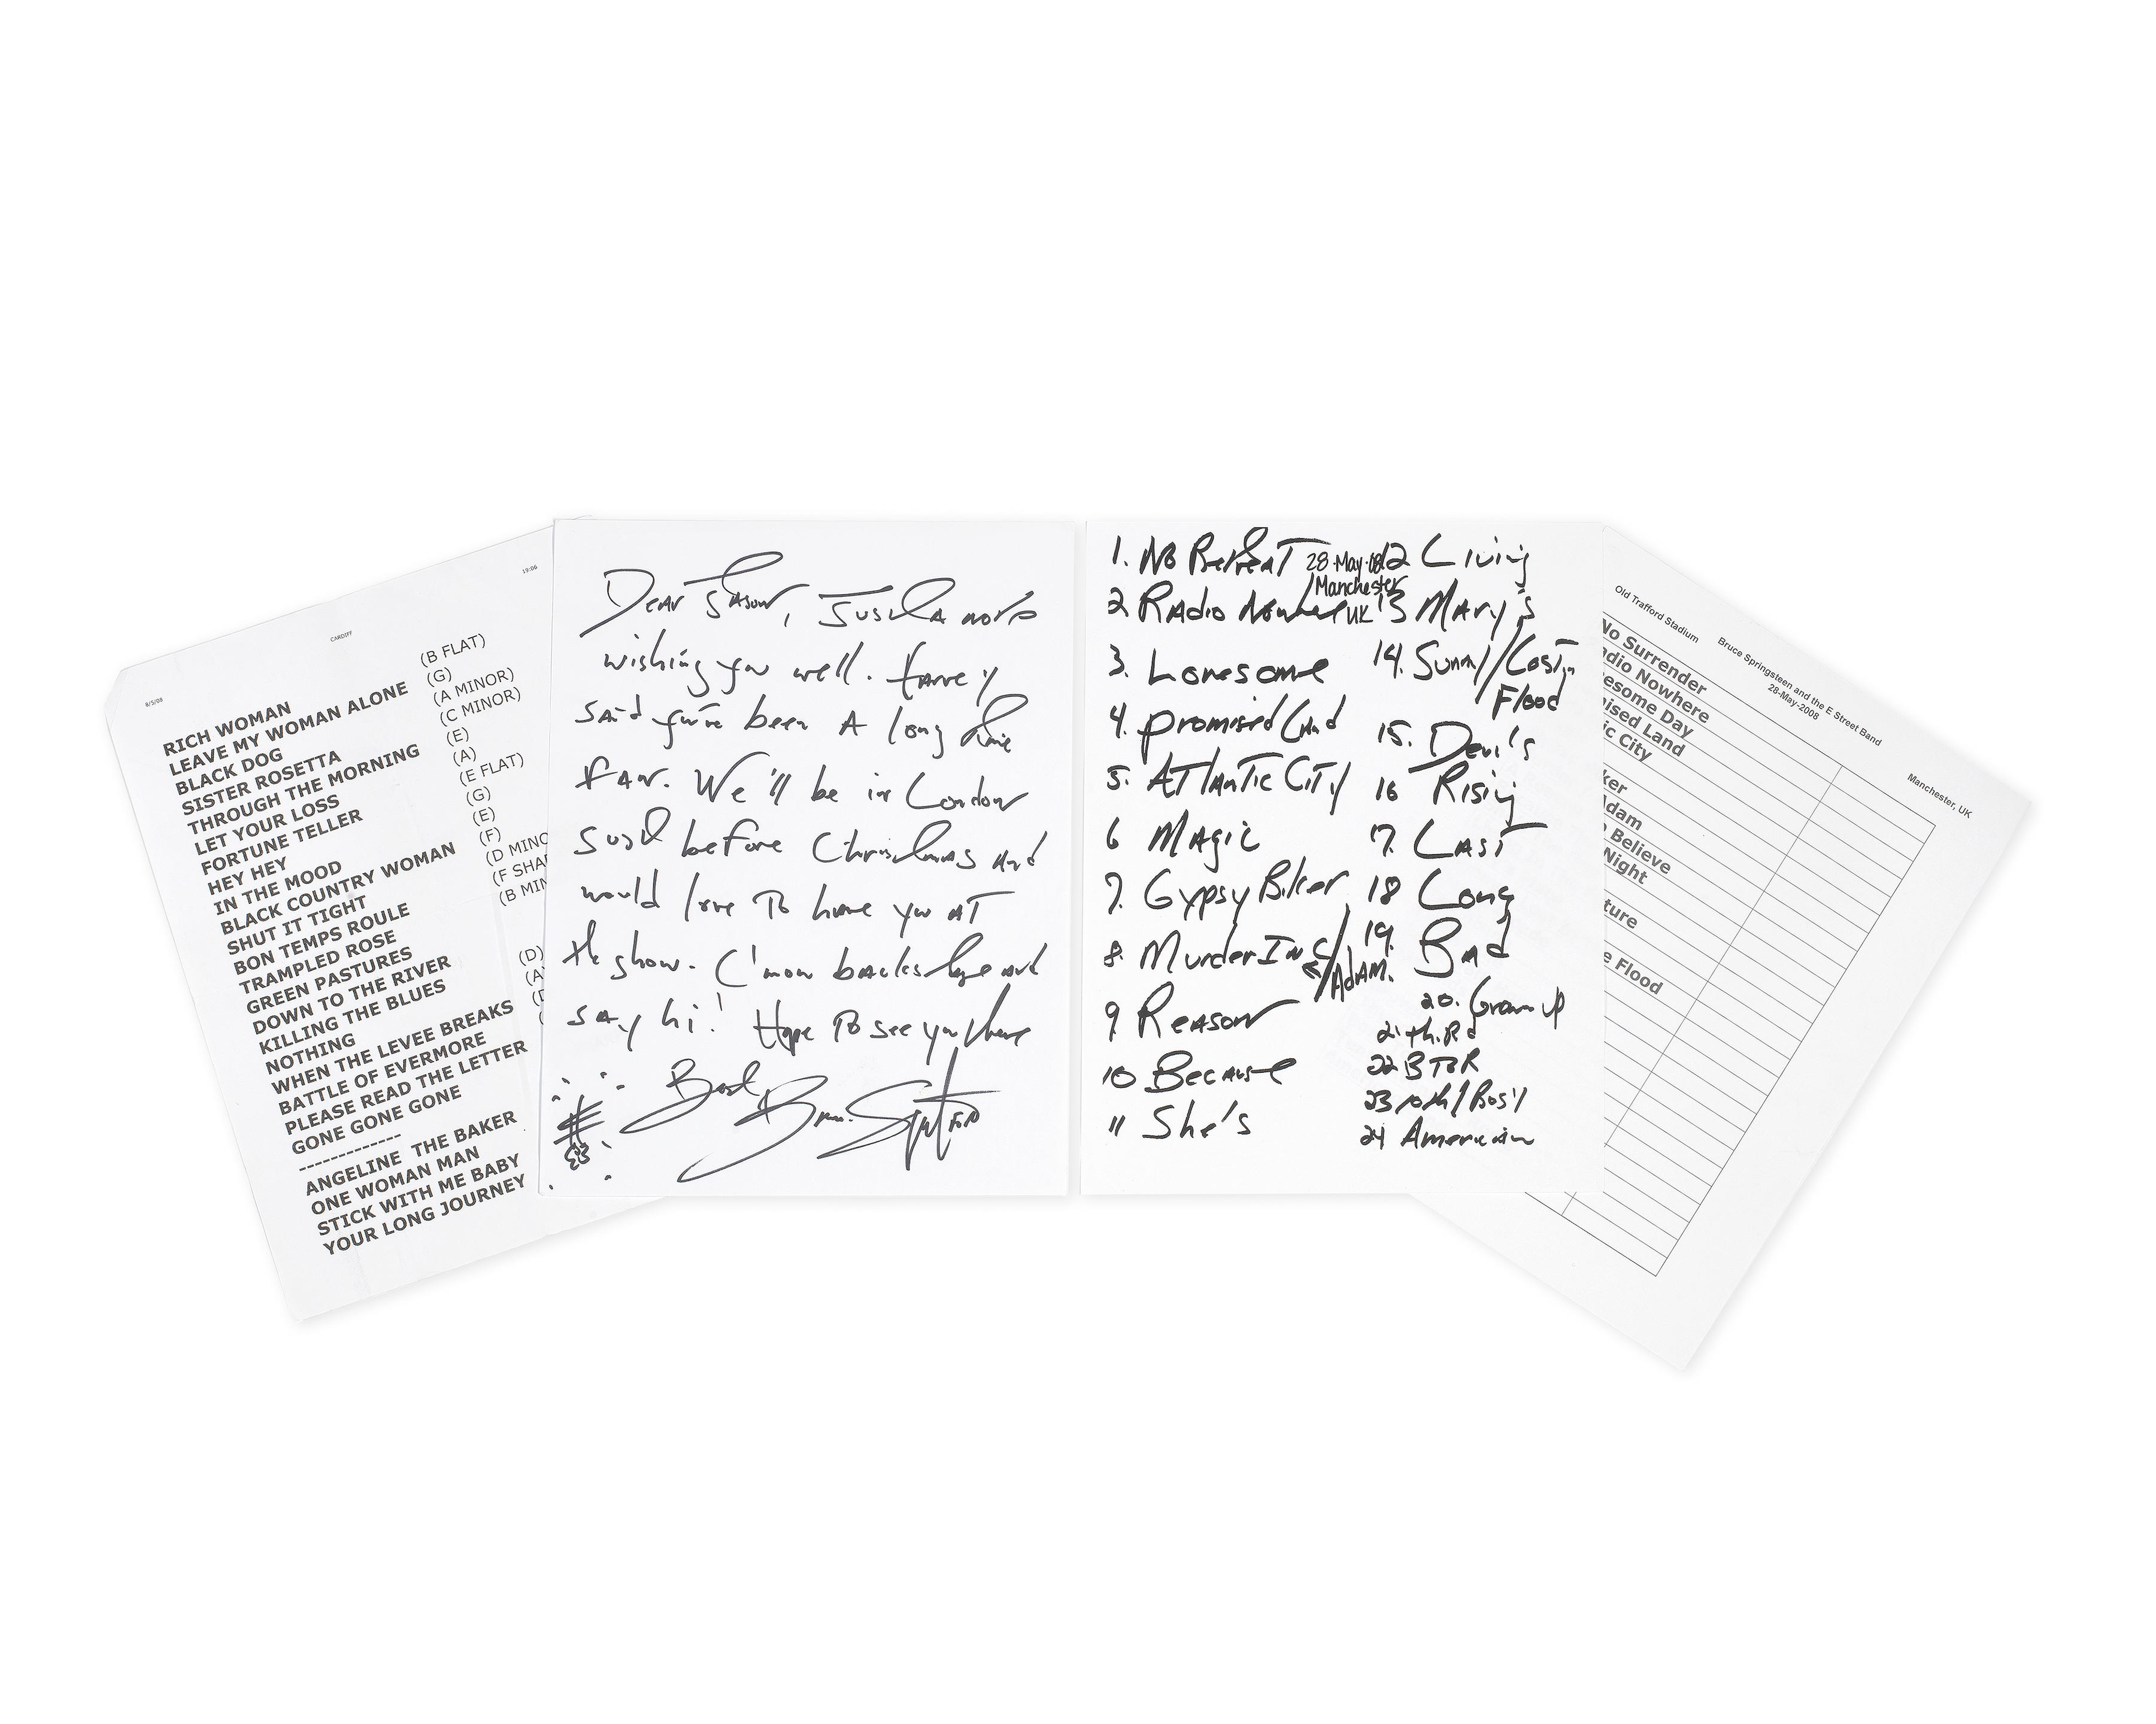 8/5/08
CARDIFF
19:06
RICH WOMAN (B FLAT)
LEAVE MY WOMAN ALONE (G)
BLACK DOG (A MINOR)
SISTER ROSETTA (C MINOR)
THROUGH THE MORNING (E)
LET YOUR LOSS (A)
FORTUNE TELLER (E FLAT)
HEY HEY (G)
IN THE MOOD (E)
BLACK COUNTRY WOMAN (F)
SHUT IT TIGHT (D MINO
BON TEMPS ROULE (F SHA
TRAMPLED ROSE (B MIN
GREEN PASTURES
DOWN TO THE RIVER
KILLING THE BLUES (D)
NOTHING (A
WHEN THE LEVEE BREAKS
BATTLE OF EVERMORE
PLEASE READ THE LETTER
GONE GONE GONE
-------------
ANGELINE THE BAKER
ONE WOMAN MAN
STICK WITH ME BABY
YOUR LONG JOURNEY
Dear Jason, Just a note
wishing you well. Harvey
said you've been a long time
fan. We'll be in London
just before Christmas and
would love to have you at
the show. C'mon backstage and
say hi! Hope to see you there
Best, Bruce Springsteen
1. No Retreat
28·May·08
Manchester
UK
2 Radio Nowhere
3. Lonesome
4. promised Land
5. Atlantic City
6 Magic
7. Gypsy Biker
8. Murder Inc/
Adam.
9 Reason
10 Because
11 She's
12 Living
13 Mary's
14. Sunny/Lost in
Flood
15. Devil's
16 Rising
17. Last
18 Long
19. Bad
20. Grown up
21. th.Rd
22 BTBR
23 10th/Rosy
24 American
Old Trafford Stadium
Bruce Springsteen and the E Street Band
28-May-2008
Manchester, UK
No Surrender
dio Nowhere
esome Day
ised Land
ic City
ker
Adam
Believe
Night
ture
e Flood